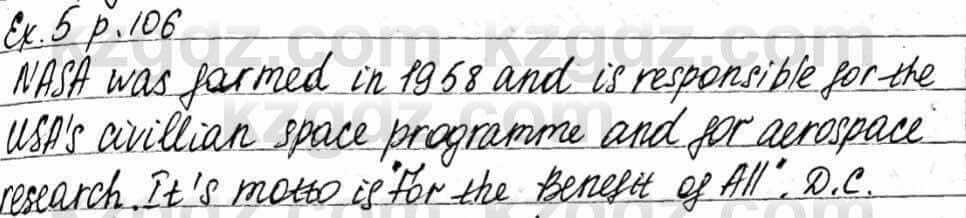 Ex. 5 p. 106
NASA was farmed in 1958 and is responsible for the
USA's civillian space programme and for aerospace
research. It's motto is "For the Benefit of All". D.C.